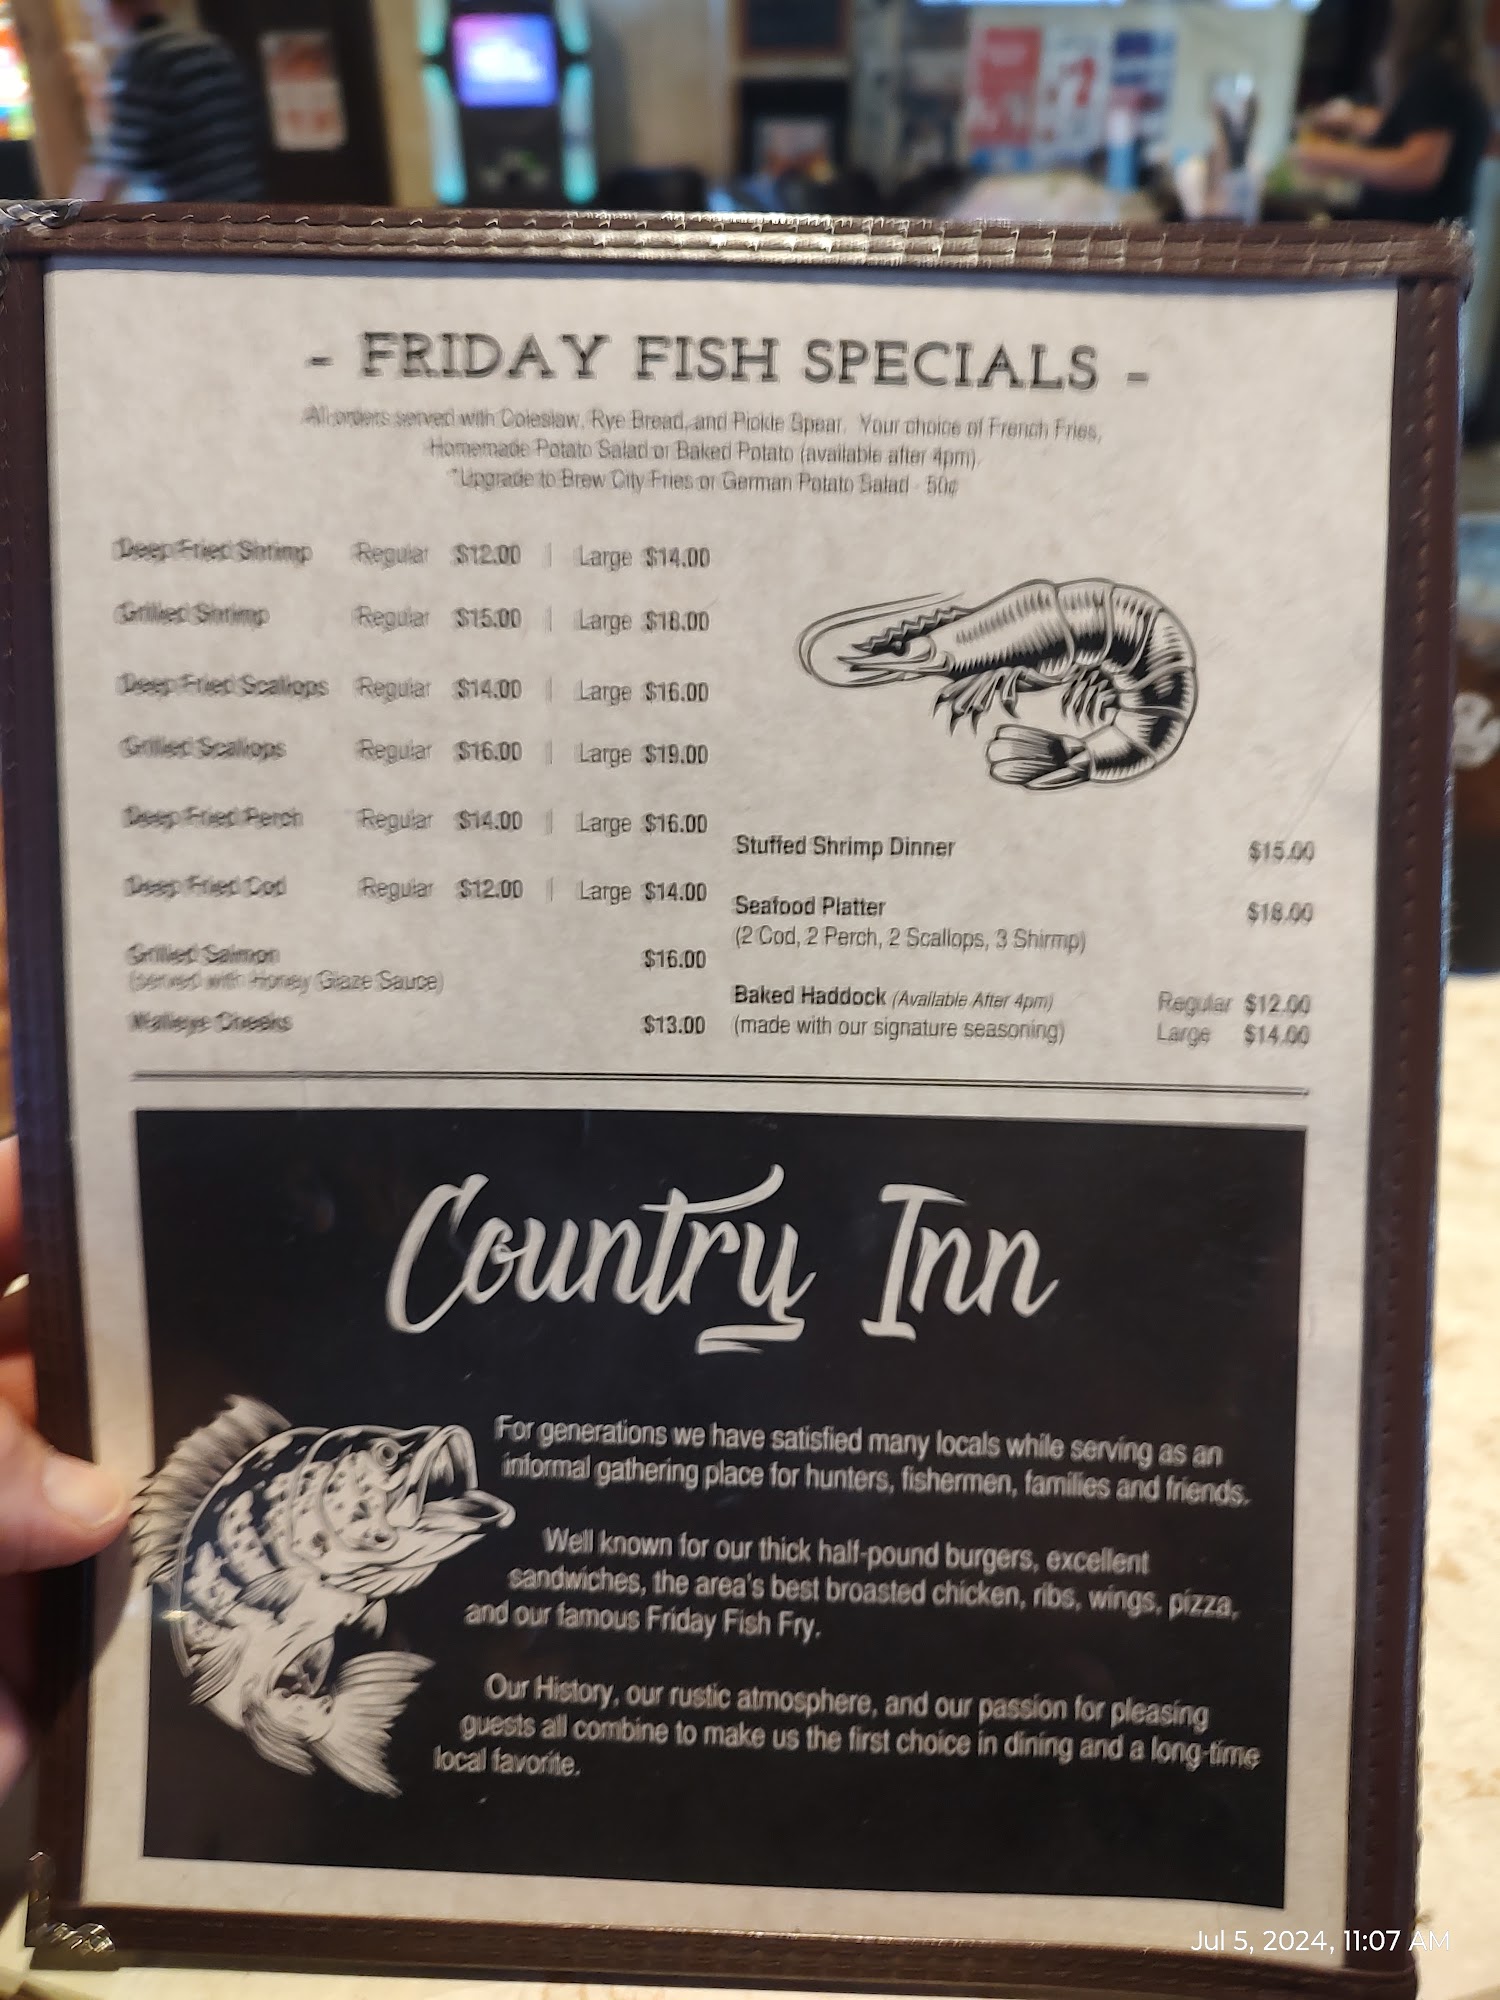 - FRIDAY FISH SPECIALS -
All orders served with Coleslaw, Rye Bread, and Pickle Spear. Your choice of French Fries,
Homemade Potato Salad or Baked Potato (available after 4pm).
*Upgrade to Brew City Fries or German Potato Salad - 50¢
Deep Fried Shrimp Regular $12.00 | Large $14.00
Grilled Shrimp Regular $15.00 | Large $18.00
Deep Fried Scallops Regular $14.00 | Large $16.00
Grilled Scallops Regular $16.00 | Large $19.00
Deep Fried Perch Regular $14.00 | Large $16.00
Deep Fried Cod Regular $12.00 | Large $14.00
Grilled Salmon $16.00
(served with Honey Glaze Sauce)
Walleye Cheeks $13.00
Stuffed Shrimp Dinner $15.00
Seafood Platter $18.00
(2 Cod, 2 Perch, 2 Scallops, 3 Shirmp)
Baked Haddock (Available After 4pm) Regular $12.00
(made with our signature seasoning) Large $14.00
Country Inn
For generations we have satisfied many locals while serving as an
informal gathering place for hunters, fishermen, families and friends.
Well known for our thick half-pound burgers, excellent
sandwiches, the area's best broasted chicken, ribs, wings, pizza,
and our famous Friday Fish Fry.
Our History, our rustic atmosphere, and our passion for pleasing
guests all combine to make us the first choice in dining and a long-time
local favorite.
Jul 5, 2024, 11:07 AM